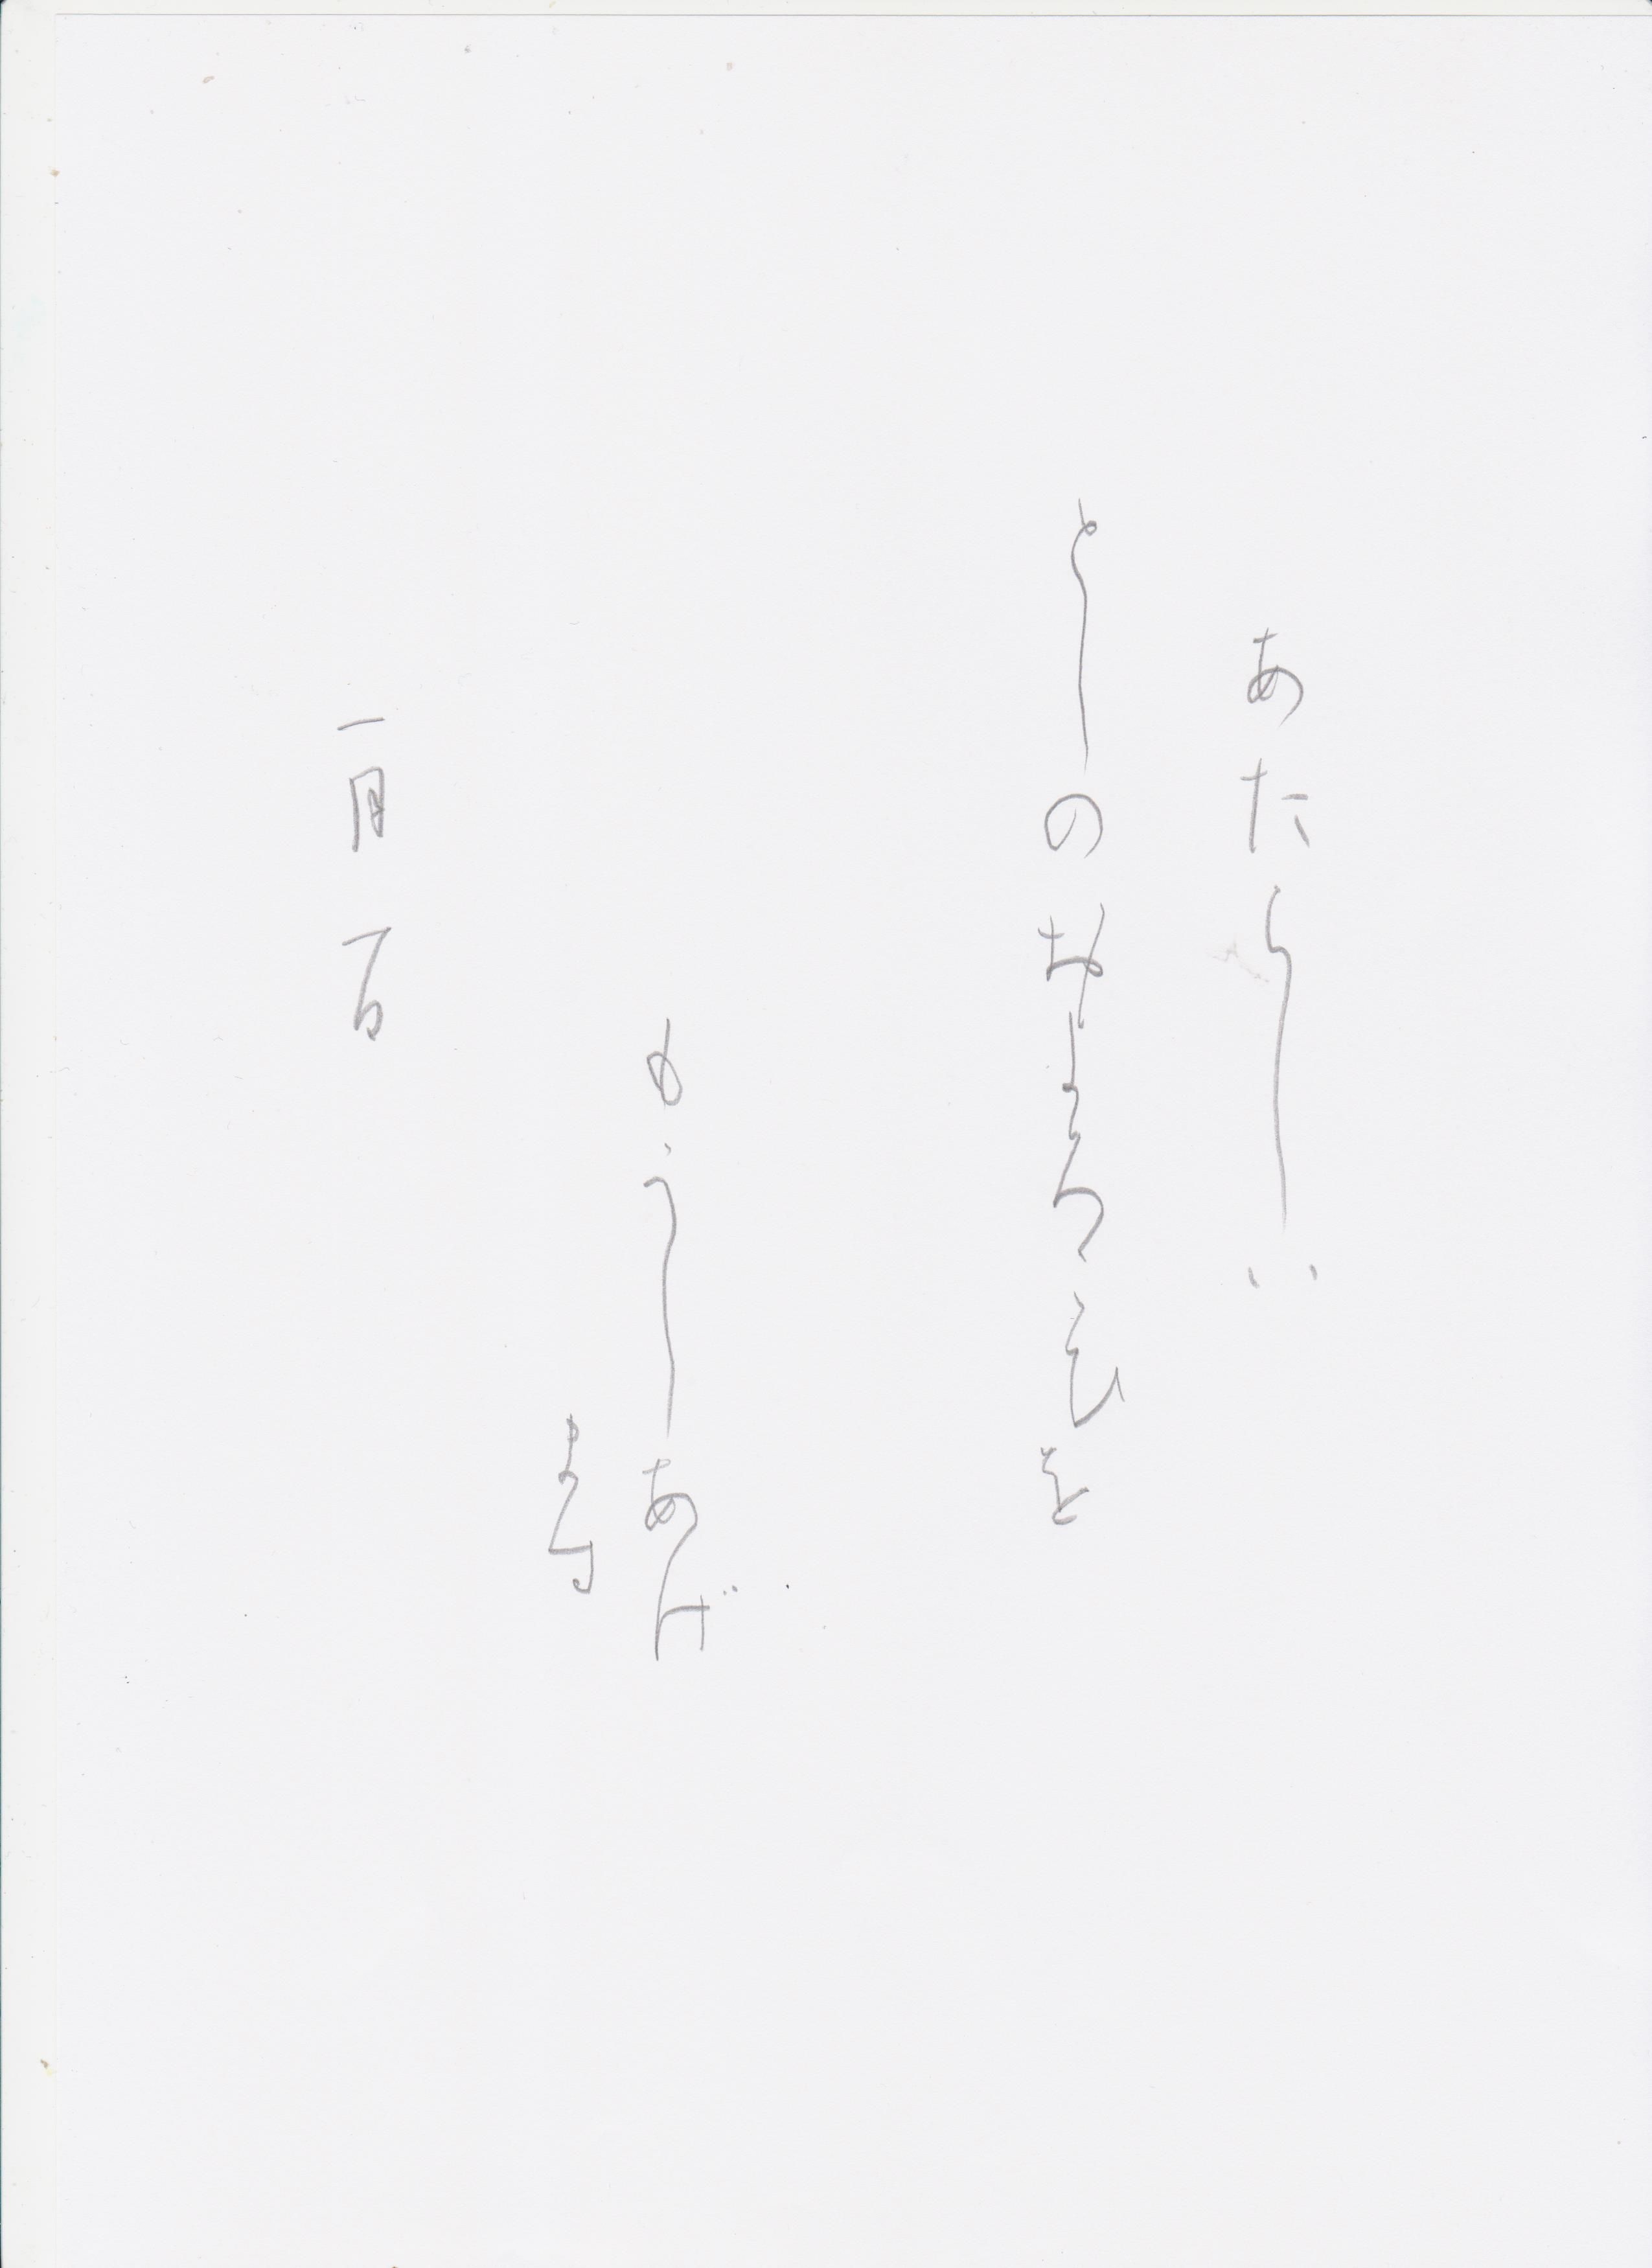 あたらしい
としのおよろこひを
もうしあげ
ます
一月一日